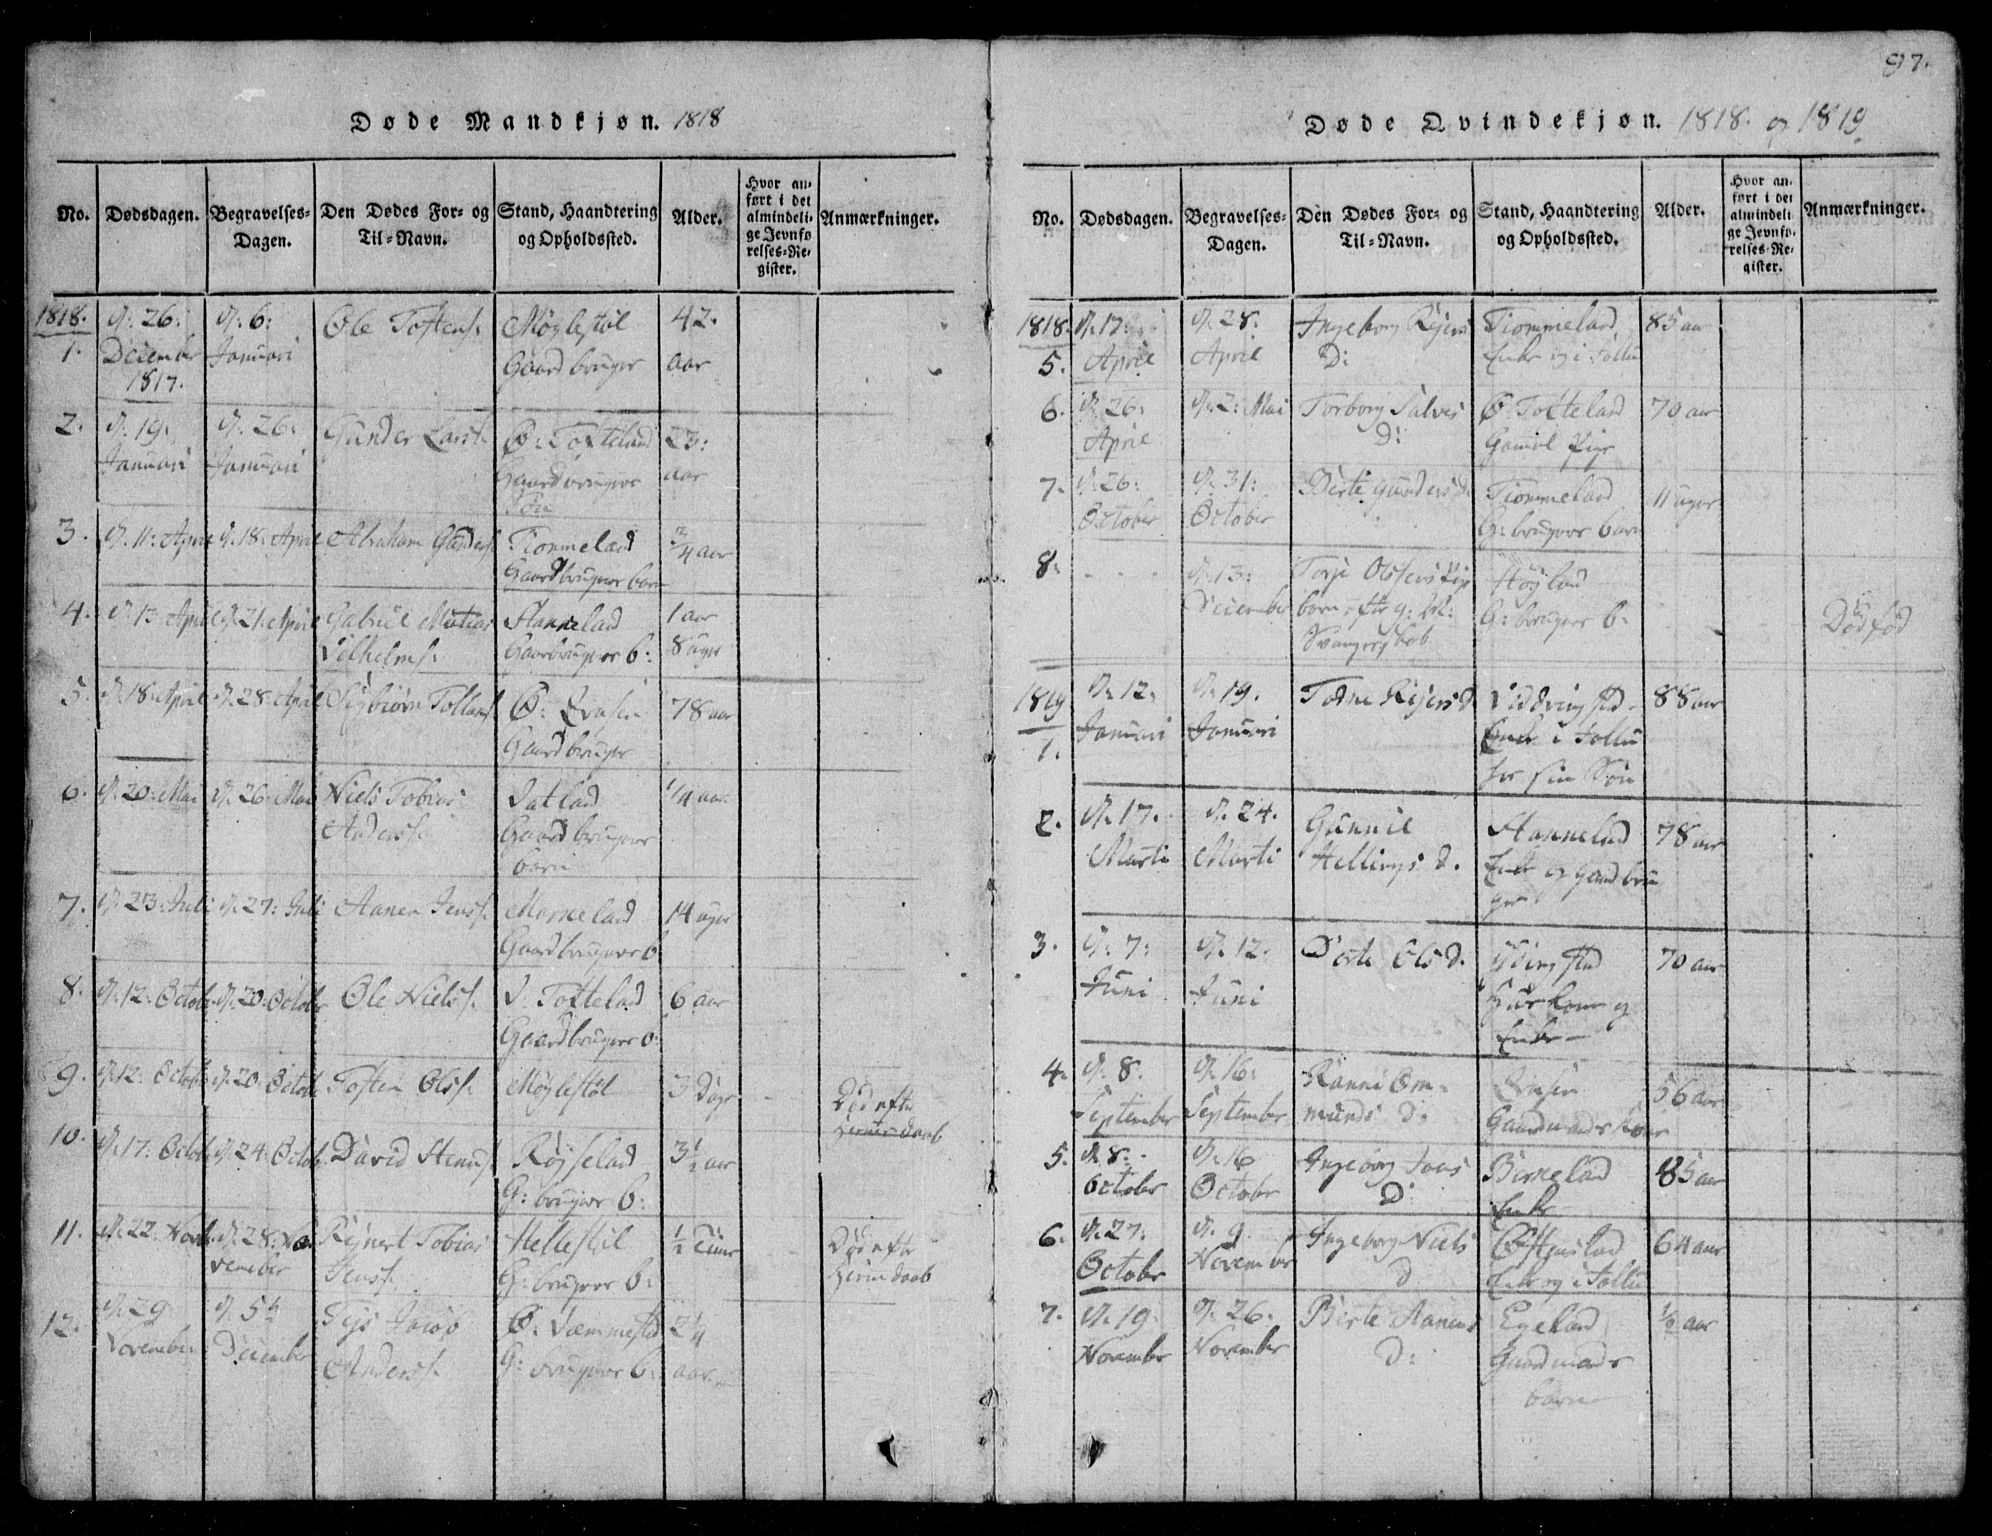 97.
Døde Mandkjøn. 1818
No. Dødsdagen. Begravelses-Dagen. Den Dødes For- og Til-Navn. Stand, Haandtering og Opholdssted. Alder. Hvor anført i det almindelige Jevnførelses-Register. Anmærkninger.
1818. 1. d: 26: December 1817. d: 6: Januari Ole Tostens: Møglestøl Gaardbruger 42. aar
2. d: 19. Januari d: 26: Januari Gunder Lars: Ø: Tofteland Gaardbruger Søn 23: aar
3. d. 11: April d. 18: April Abraham Gunders: Tiommeland Gaardbruger barn 3/4 aar
4. d. 13 April d. 21. April Gabriel Matias Vilhelms: Stanneland Gaardbruger b: 1 aar 8 uger
5. d. 18. April d. 28. April Sigbiørn Gaardbruger 78 aar
6. d. 20: Mai d. 26: Mai Niels Tobias Anders: Vatland Gaardbruger barn 1/4 aar
7. d. 23: Juli d. 27: Juli Aanen Jens: Gaardbruger b 14 uger
8. d. 12: October d. 20: October Ole Niels: V. Tofteland Gaardbruger b: 6 aar
9. d. 12: October d. 20: October Tosten Ols: Møglestøl 3 Dage Død efter daab
10. d. 17: October d. 24: October David Røyseland G: bruger b: 3 1/2 aar
11. d. 22: Novb. d. 28: November Rejnert Tobias Jens: Hellestøl G: bruger b: 1/2 Time Død efter daab
12. d. 29 November d. 5te December Jacob Anders: Ø: Væmmestad G: bruger b: 2 1/4 aar
Døde Qvindekjøn. 1818. og 1819
No. Dødsdagen. Begravelses-Dagen. Den Dødes For- og Til-Navn. Stand, Haandtering og Opholdssted. Alder. Hvor anført i det almindelige Jevnførelses-Register. Anmærkninger.
1818. 5. d. 17: April d. 28: April Ingeborg Rejers D: Tiommeland Enke 85 aar
6. d. 26: April d. 2: Mai Torborg Salves D: Ø. Tofteland Gamel Pige 70 aar
7. d. 26: October d. 31: October Berte Gunders D. Tiommeland G: bruger barn 11 uger
8: - - - d. 13: December Olsens barn Høyland G: bruger b: Dødfød
1819 1. d. 12. Januari d. 19. Januari Rejers D. Enke i sin Søn 88 aar
2. d. 17. Marti d. 24. Marti Gunnil Hellings D. Stanneland Enke og gaardbruger 78 aar
3. d. 7: Juni d. 12. Juni Dorte Ols D. og Enke 70 aar
4. d. 8. September d. 16: September Ranni Ommunds D. Gaardmands kone 56 aar
5. d. 8. October d. 16 October Ingeborg D. Birkeland Enke 85 aar
6. d. 27: October d. 9 November Ingeborg Niels D Enke og i 64 aar
7. d. 19. November d. 26: November Birte Aanens D: Egeland Gaardmands barn 1/2 aar